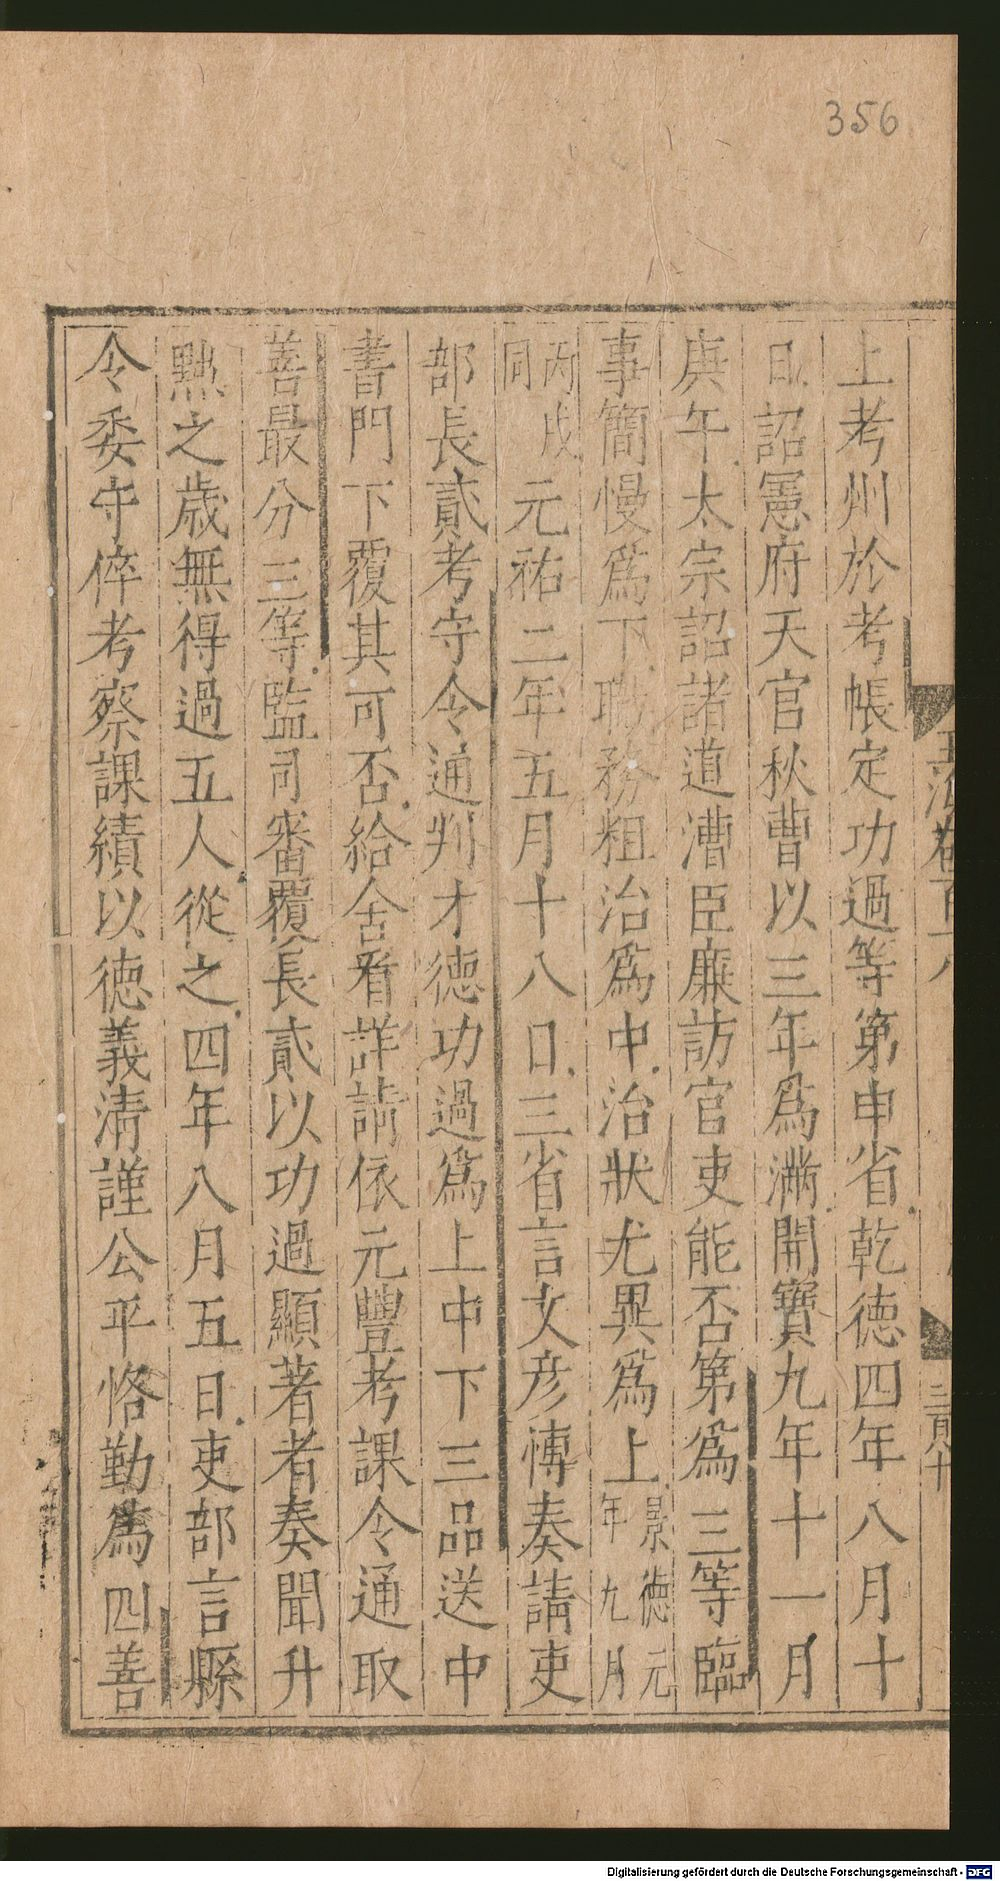 356
上考州於考帳定功過等第申省乾德四年八月十
日詔憲府天官秋曹以三年爲滿開寶九年十一月
庚午太宗詔諸道漕臣廉訪官吏能否第爲三等臨
事簡慢爲下職務粗治爲中治狀尤異爲上景德元年九月
丙戌同元祐二年五月十八日三省言文彦博奏請吏
部長貳考守令通判才德功過爲上中下三品送中
書門下覆其可否給舍看詳請依元豐考課令通取
善最分三等監司審覆長貳以功過顯著者奏聞升
黜之歲無得過五人從之四年八月五日吏部言縣
令委守倅考察課績以德義清謹公平恪勤爲四善
玉海卷百十八
Digitalisierung gefördert durch die Deutsche Forschungsgemeinschaft - DFG